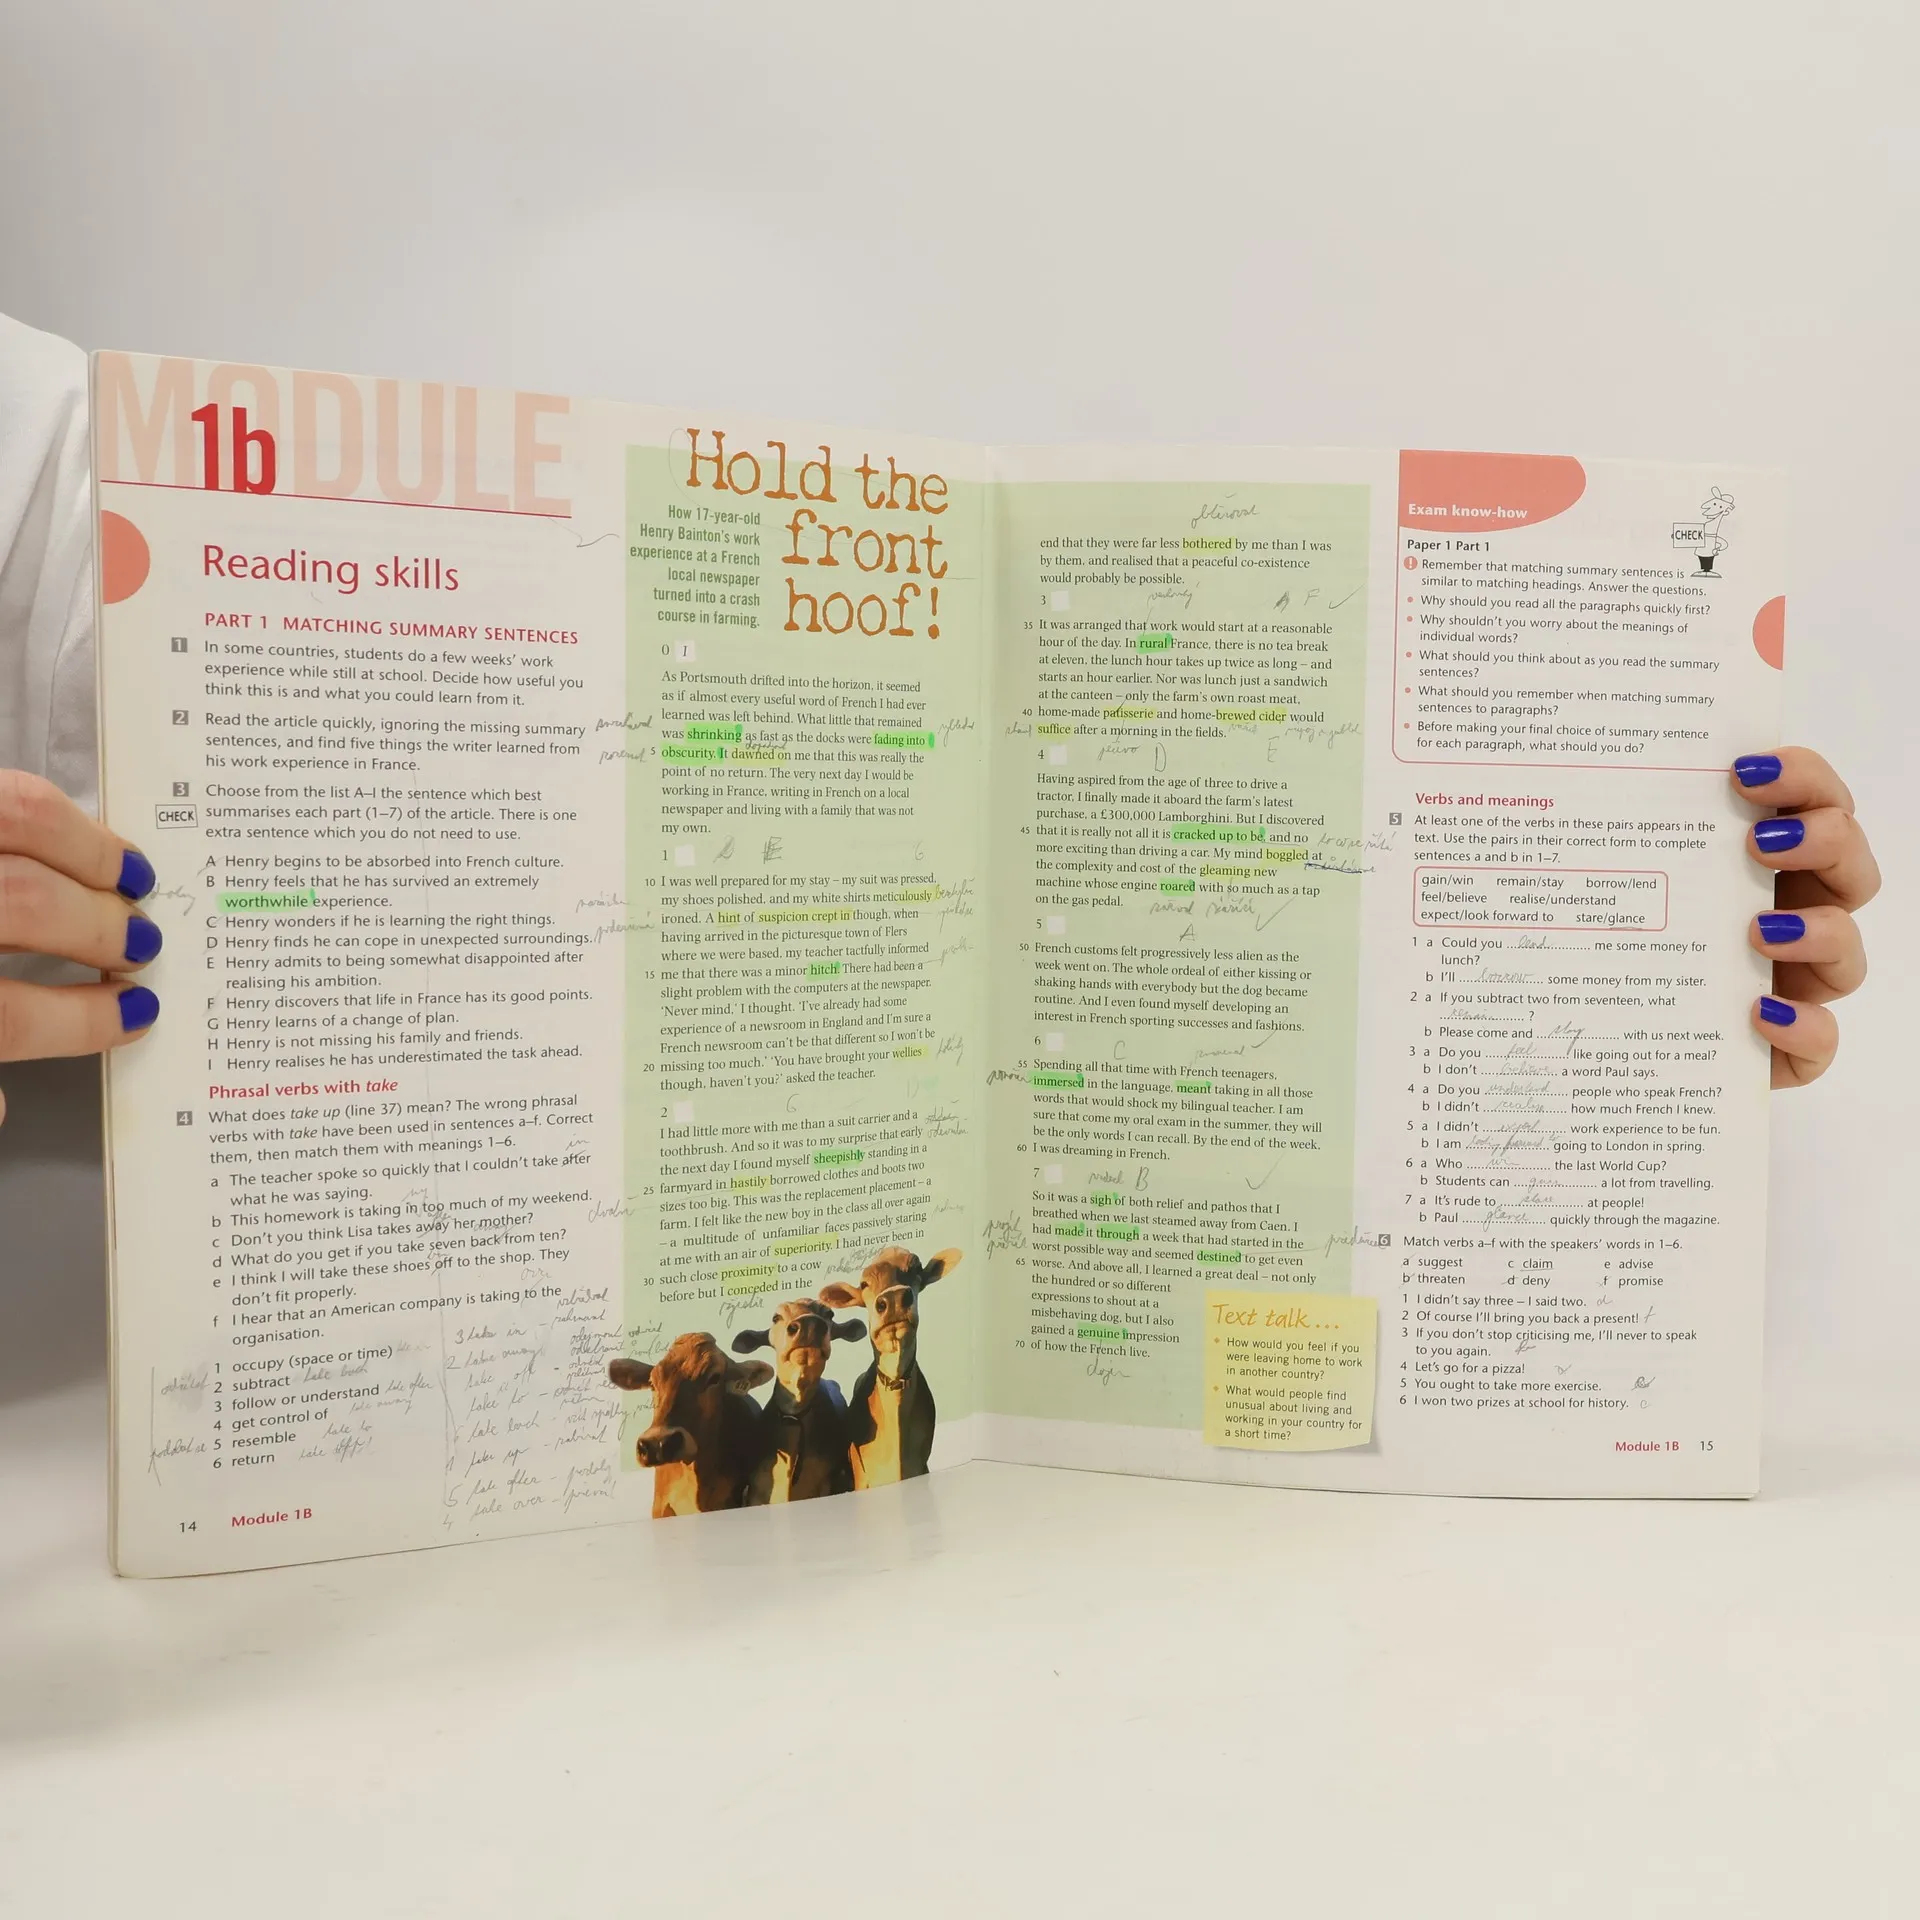 MODULE
1b
Reading skills
PART 1 MATCHING SUMMARY SENTENCES
1 In some countries, students do a few weeks' work
experience while still at school. Decide how useful you
think this is and what you could learn from it.
2 Read the article quickly, ignoring the missing summary
sentences, and find five things the writer learned from
his work experience in France.
3 Choose from the list A–I the sentence which best
CHECK summarises each part (1–7) of the article. There is one
extra sentence which you do not need to use.
A Henry begins to be absorbed into French culture.
B Henry feels that he has survived an extremely
worthwhile experience.
C Henry wonders if he is learning the right things.
D Henry finds he can cope in unexpected surroundings.
E Henry admits to being somewhat disappointed after
realising his ambition.
F Henry discovers that life in France has its good points.
G Henry learns of a change of plan.
H Henry is not missing his family and friends.
I Henry realises he has underestimated the task ahead.
Phrasal verbs with take
4 What does take up (line 37) mean? The wrong phrasal
verbs with take have been used in sentences a–f. Correct
them, then match them with meanings 1–6.
in
a The teacher spoke so quickly that I couldn't take after
what he was saying.
up
b This homework is taking in too much of my weekend.
c Don't you think Lisa takes away her mother?
d What do you get if you take seven back from ten?
e I think I will take these shoes off to the shop. They
don't fit properly.
over
f I hear that an American company is taking to the
organisation.
1 occupy (space or time)
2 subtract take back
3 follow or understand take after
4 get control of take away
5 resemble take to
6 return take off!
3 take in
2 take away
take off
take to
6 take back
1 take up
5 take after
4 take over
14 Module 1B
Hold the
front
hoof!
How 17-year-old
Henry Bainton's work
experience at a French
local newspaper
turned into a crash
course in farming.
0 I
As Portsmouth drifted into the horizon, it seemed
as if almost every useful word of French I had ever
learned was left behind. What little that remained
was shrinking as fast as the docks were fading into
5 obscurity. It dawned on me that this was really the
point of no return. The very next day I would be
working in France, writing in French on a local
newspaper and living with a family that was not
my own.
1
10 I was well prepared for my stay – my suit was pressed,
my shoes polished, and my white shirts meticulously
ironed. A hint of suspicion crept in though, when
having arrived in the picturesque town of Flers
where we were based, my teacher tactfully informed
15 me that there was a minor hitch. There had been a
slight problem with the computers at the newspaper.
'Never mind,' I thought. 'I've already had some
experience of a newsroom in England and I'm sure a
French newsroom can't be that different so I won't be
20 missing too much.' 'You have brought your wellies
though, haven't you?' asked the teacher.
G
2
I had little more with me than a suit carrier and a
toothbrush. And so it was to my surprise that early
the next day I found myself sheepishly standing in a
25 farmyard in hastily borrowed clothes and boots two
sizes too big. This was the replacement placement – a
farm. I felt like the new boy in the class all over again
– a multitude of unfamiliar faces passively staring
at me with an air of superiority. I had never been in
30 such close proximity to a cow
before but I conceded in the
end that they were far less bothered by me than I was
by them, and realised that a peaceful co-existence
would probably be possible.
3 F
35 It was arranged that work would start at a reasonable
hour of the day. In rural France, there is no tea break
at eleven, the lunch hour takes up twice as long – and
starts an hour earlier. Nor was lunch just a sandwich
at the canteen – only the farm's own roast meat,
40 home-made patisserie and home-brewed cider would
suffice after a morning in the fields.
4 D E
Having aspired from the age of three to drive a
tractor, I finally made it aboard the farm's latest
purchase, a £300,000 Lamborghini. But I discovered
45 that it is really not all it is cracked up to be, and no
more exciting than driving a car. My mind boggled at
the complexity and cost of the gleaming new
machine whose engine roared with so much as a tap
on the gas pedal.
5 A
50 French customs felt progressively less alien as the
week went on. The whole ordeal of either kissing or
shaking hands with everybody but the dog became
routine. And I even found myself developing an
interest in French sporting successes and fashions.
6 C
55 Spending all that time with French teenagers,
immersed in the language, meant taking in all those
words that would shock my bilingual teacher. I am
sure that come my oral exam in the summer, they will
be the only words I can recall. By the end of the week,
60 I was dreaming in French.
7 B
So it was a sigh of both relief and pathos that I
breathed when we last steamed away from Caen. I
had made it through a week that had started in the
worst possible way and seemed destined to get even
65 worse. And above all, I learned a great deal – not only
the hundred or so different
expressions to shout at a
misbehaving dog, but I also
gained a genuine impression
70 of how the French live.
dojem
Text talk...
• How would you feel if you
were leaving home to work
in another country?
• What would people find
unusual about living and
working in your country for
a short time?
Exam know-how
CHECK
Paper 1 Part 1
! Remember that matching summary sentences is
similar to matching headings. Answer the questions.
• Why should you read all the paragraphs quickly first?
• Why shouldn't you worry about the meanings of
individual words?
• What should you think about as you read the summary
sentences?
• What should you remember when matching summary
sentences to paragraphs?
• Before making your final choice of summary sentence
for each paragraph, what should you do?
Verbs and meanings
5 At least one of the verbs in these pairs appears in the
text. Use the pairs in their correct form to complete
sentences a and b in 1–7.
gain/win remain/stay borrow/lend
feel/believe realise/understand
expect/look forward to stare/glance
1 a Could you lend me some money for
lunch?
b I'll borrow some money from my sister.
2 a If you subtract two from seventeen, what
remain ?
b Please come and stay with us next week.
3 a Do you feel like going out for a meal?
b I don't believe a word Paul says.
4 a Do you understand people who speak French?
b I didn't realise how much French I knew.
5 a I didn't expect work experience to be fun.
b I am looking forward to going to London in spring.
6 a Who win the last World Cup?
b Students can gain a lot from travelling.
7 a It's rude to stare at people!
b Paul glance quickly through the magazine.
6 Match verbs a–f with the speakers' words in 1–6.
a suggest c claim e advise
b threaten d deny f promise
1 I didn't say three – I said two. d
2 Of course I'll bring you back a present! f
3 If you don't stop criticising me, I'll never to speak
to you again.
4 Let's go for a pizza! a
5 You ought to take more exercise.
6 I won two prizes at school for history. c
Module 1B 15